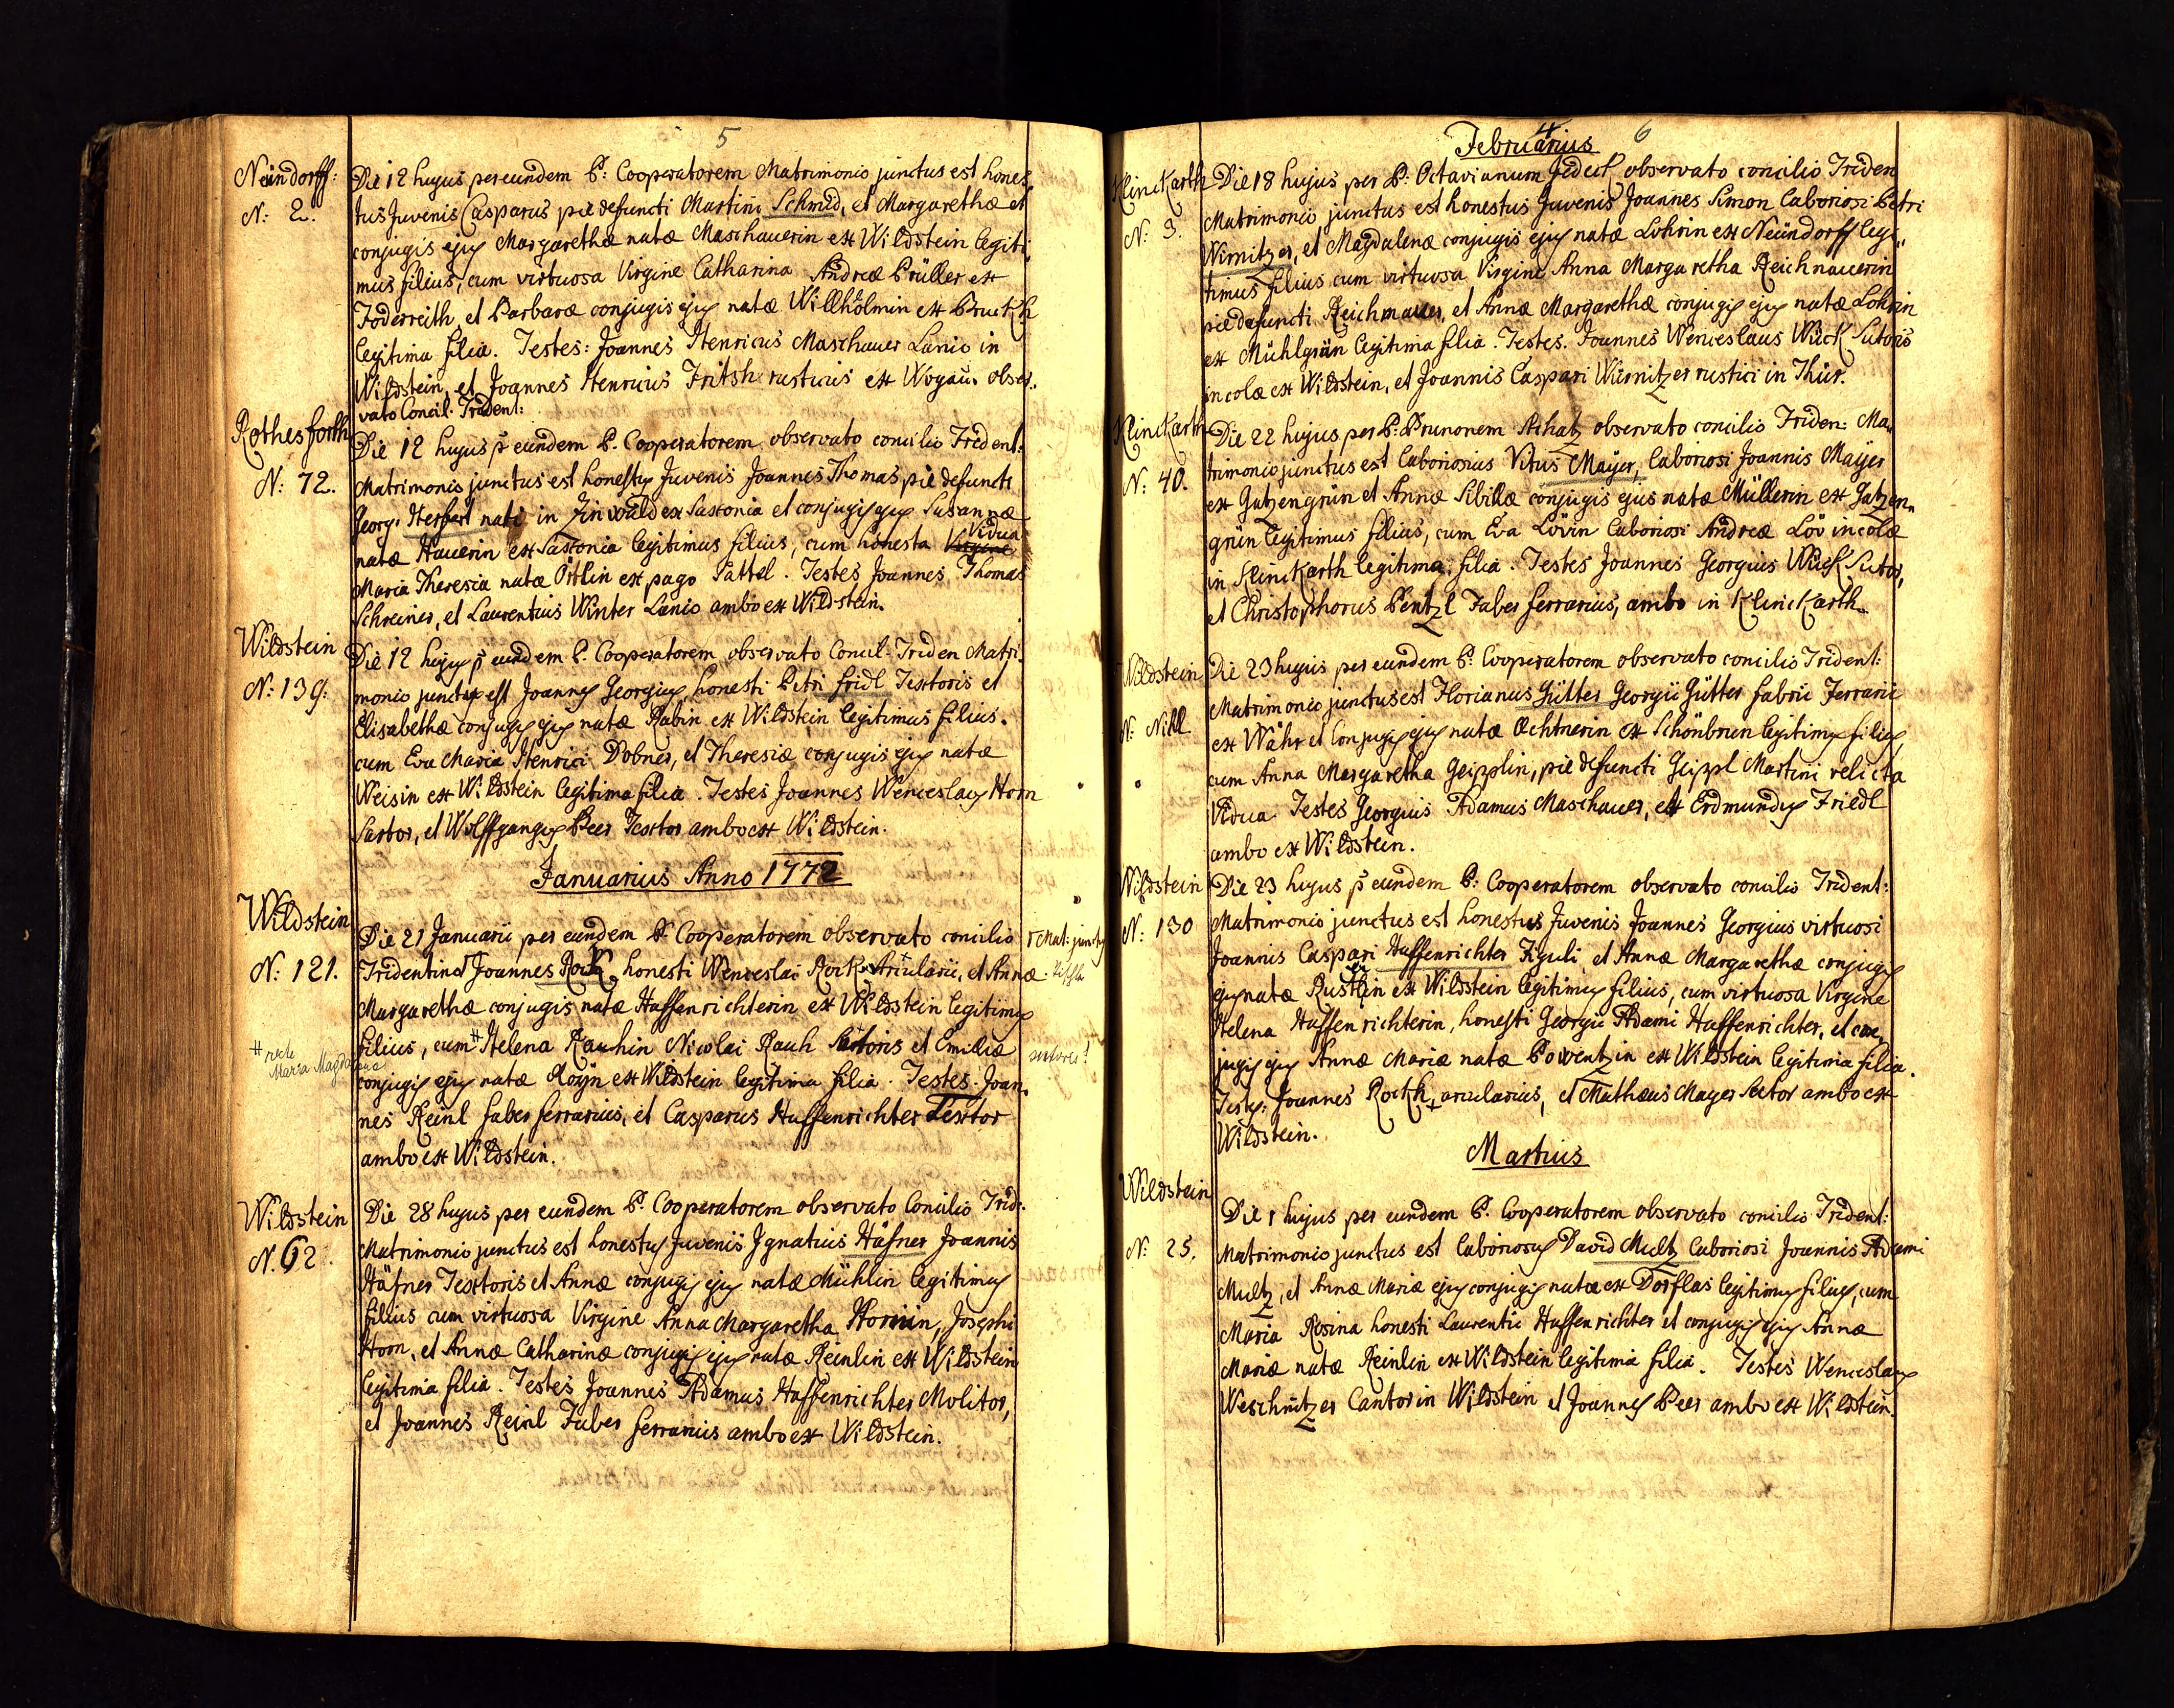 5
Neündorff:
N: 2.
Die 12 hujus per eundem P: Cooperatorem Matrimonio junctus est hones
tus Juvenis Casparus pie defuncti Martini Schmid, et Margarethæ et
conjugis ejus Margarethæ natæ Maschauerin ex Wildstein legiti
mus filius, cum virtuosa Virgine Catharina Andreæ Prüller ex
Foderreith et Barbaræ conjugis ejus natæ Willhölmin ex
legitima filia. Testes: Joannes Henricus Maschauer Lanio in
Wildstein, et Joannes Henricus Fritsh rusticus ex Wogau. obser.
vato Concil. Trident:
Rothesforth
N: 72.
Die 12 hujus p eundem P. Cooperatorem observato concilio Trident:
Matrimonio junctus est honestus Juvenis Joannes Thomas pie defuncti
Georg. Herfert nati in Zinwald ex Saxonia et conjugis ejus Susannæ
Vidua
natæ Hauerin ex Saxonia legitimus filius, cum honesta Virgine
Maria Theresia natæ Östlin ex pago Sattel. Testes Joannes Thomas
Schreiner, et Laurentius Winter Lanio ambo ex Wildstein.
Wildstein
N: 139:
Die 12 hujus p eundem P. Cooperatorem observato Concil. Triden Matri
monio junctus est Joannes Georgius honesti Petri Fridl Textoris et
Elisabethæ conjugis ejus natæ Rabin ex Wildstein legitimus filius.
cum Eva Maria Henrici Dobner, et Theresiæ conjugis ejus natæ
Weisin ex Wildstein legitima filia. Testes Joannes Wenceslaus Horn
Sartor, et Wolffgangus Peer Textor ambo ex Wildstein.
Januarius Anno 1772
Wildstein
N: 121.
Die 21 Januarii per eundem P. Cooperatorem observato concilio Γ Mat: junctus
Tridentino Γ Joannes Rock, honesti Wenceslai Rock Arcularii, et Annæ
Margarethæ conjugis natæ Haffenrichterin ex Wildstein legitimus
filius, cum # Helena Rauhin Nicolai Rauh Sartoris et Emiliæ sutoris!
# recte
Maria Magdalena
conjugis ejus natæ Aloyn ex Wildstein legitima filia. Testes. Joan.
nes Reinl faber ferrarius, et Casparus Haffenrichter Textor
ambo ex Wildstein.
Wildstein
N. 62.
Die 28 hujus per eundem P. Cooperatorem observato Concilio Trid:
Matrimonio junctus est honestus Juvenis Ignatius Häfner Joannis
Häfner Textoris et Annæ conjugis ejus natæ Mühlin legitimus
filius cum virtuosa Virgine Anna Margaretha Hornin, Josephi
Horn, et Annæ Catharinæ conjugis ejus natæ Reinlin ex Wildstein
legitima filia. Testes Joannes Adamus Haffenrichter Molitor,
et Joannes Reinl Faber ferrarius ambo ex Wildstein.
6
Februarius
KlincKarth
N: 3.
Die 18 hujus per P: Octavianum observato concilio Triden
Matrimonio junctus est honestus Juvenis Joannes Simon laboriosi Petri
Wirnitzer, et Magdalenæ conjugis ejus natæ Lohrin ex Neündorff legi"
timus filius cum virtuosa Virgine Anna Margaretha Reichnauerin
pie defuncti Reichmauer, et Annæ Margarethæ conjugis ejus natæ Lohrin
ex Mühlgrün legitima filia. Testes. Joannes Wenceslaus Wück Sutoris
incolæ ex Wildstein, et Joannis Caspari Würnitzer rustici in Thür.
KlincKarth
N: 40.
Die 22 hujus per P: Brunonem Achatz observato concilio Triden: Ma
trimonio junctus est laboriosus Vitus Mayer, laboriosi Joannis Mayer
ex Gatzengrün et Annæ Sibillæ conjugis ejus natæ Müllerin ex Gatzen
grün legitimus filius, cum Eva Lövin laboriosi Andreæ Löv incolæ
in KlincKarth legitima filia. Testes Joannes Georgius Wück Sutor,
et Christophorus Pentzl Faber ferrarius, ambo in KlincKarth
Wildstein
N: Nihl
Die 23 hujus per eundem P: Cooperatorem observato concilio Trident:
Matrimonio junctus est Florianus Gütter Georgii Gütter fabrii Ferrarii
ex Wahr et Conjugis ejus natæ Æchtnerin ex Schönbrun legitimus filius,
cum Anna Margaretha Geipplin, pie defuncti Geippl Martini relicta
Vidua Testes Georgius Adamus Maschauer, ett Erdmundus Friedl
ambo ex Wildstein.
Wildstein
N: 130
Die 23 hujus p eundem P: Cooperatorem observato concilio Trident:
Matrimonio junctus est honestus Juvenis Joannes Georgius virtuosi
Joannis Caspari Haffenrichter Figuli, et Annæ Margarethæ conjugis
ejus natæ Rustlin ex Wildstein legitimus filius, cum virtuosa Virgine
Helena Haffenrichterin, honesti Georgii Adami Haffenrichter, et con
jugis ejus Annæ Mariæ natæ Powentzin ex Wildstein legitima filia.
Testes: Joannes Rockh, arcularius, et Mathæus Mayer Sartor ambo ex
Wildstein.
Martius
Wildstein
N: 25.
Die 1 hujus per eundem P. Cooperatorem observato concilio Trident:
Matrimonio junctus est laboriosus David Multz laboriosi Joannis Adami
Multz, et Annæ Mariæ ejus conjugis natæ ex Dörflas legitimus filius, cum
Maria Rosina honesti Laurentii Haffenrichter et conjugis ejus Annæ
Mariæ natæ Reinlin ex Wildstein legitima filia. Testes Wenceslaus
Weschnitzer Cantor in Wildstein et Joannes Peer ambo ex Wildstein.